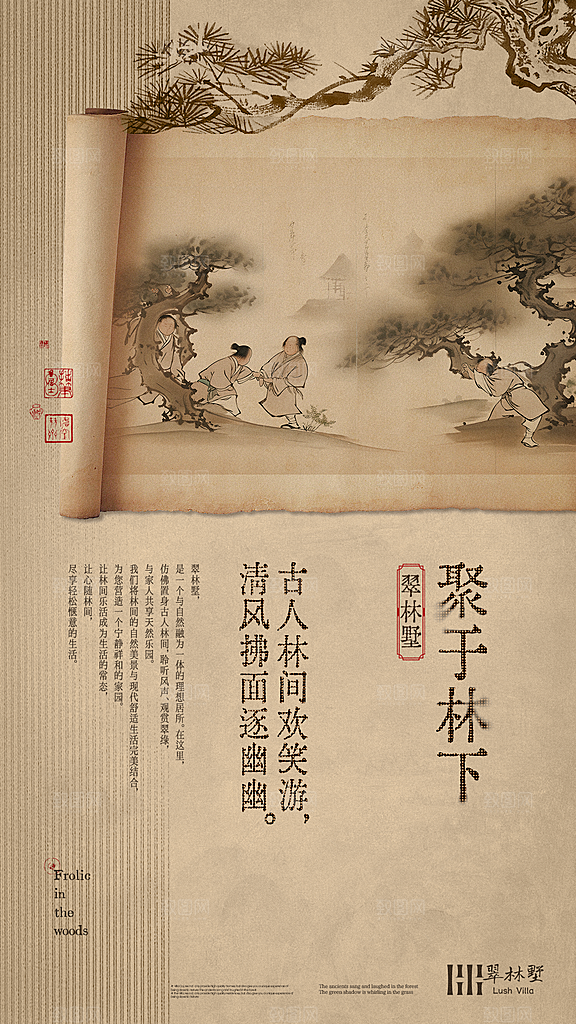 聚于林下
翠林墅
古人林间欢笑游，
清风拂面逐幽幽。
翠林墅，
是一个与自然融为一体的理想居所。在这里，
仿佛置身古人林间，聆听风声、观赏翠绿，
与家人共享天然乐园。
我们将林间的自然美景与现代舒适生活完美结合，
为您营造一个宁静祥和的家园。
让林间乐活成为生活的常态，
让心随林间，
尽享轻松惬意的生活。
Frolic
in
the
woods
The ancients sang and laughed in the forest
The green shadow is whirling in the grass
翠林墅
Lush Villa